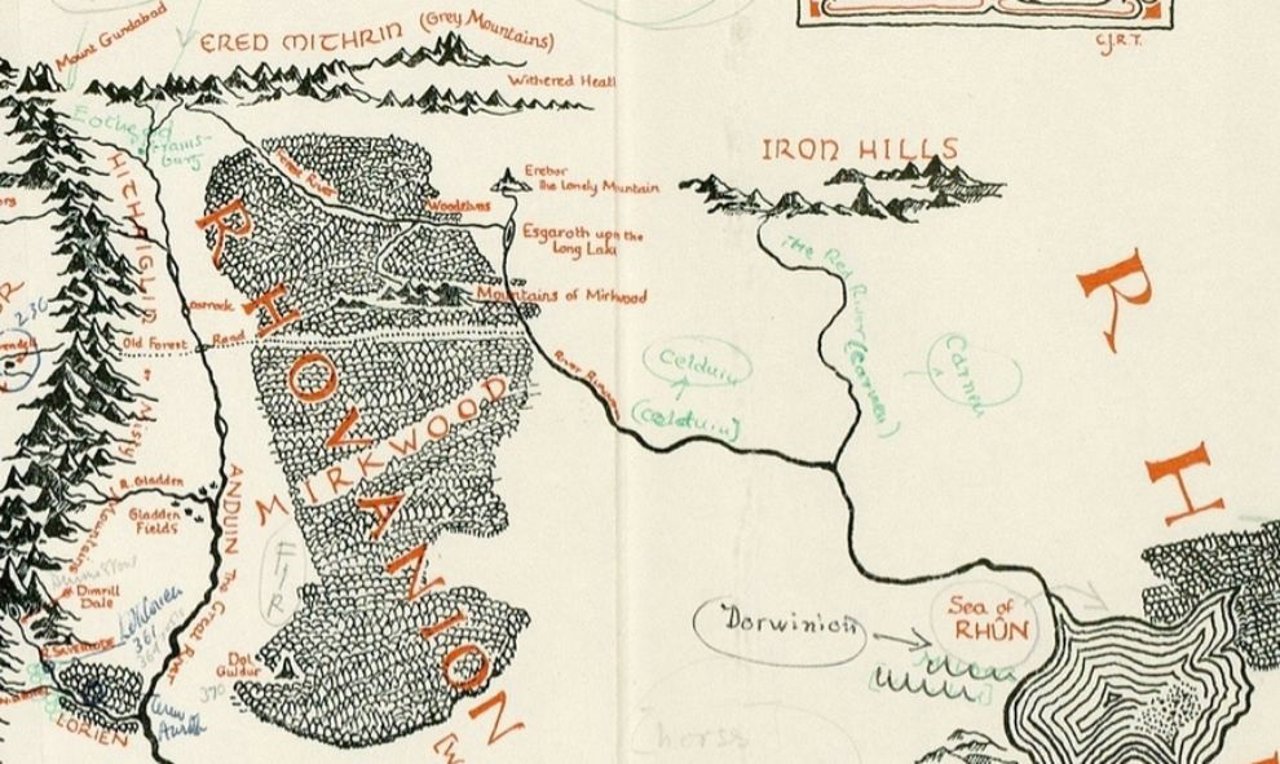 C.J.R.T.
Mount Gundabad
ERED MITHRIN (Grey Mountains)
Withered Heath
Eotheod
Frams-
burg
IRON HILLS
Erebor
The Lonely Mountain
Forest River
Woodelves
Esgaroth upon the
Long Lake
The Red River (Carnen)
Mountains of Mirkwood
236
HITHAIGLIR or Misty Mountains
Old Forest Road
River Running
Celduin
(Celduin)
Carnen
RHOVANION
MIRKWOOD
R H
R. Gladden
Gladden
Fields
ANDUIN The Great River
FIR
Dimrill
Dale
Lothlorien
361
R. Silverlode
Dol
Guldur
390
LORIEN
Dorwinion
Sea of
RHÛN
[horse]